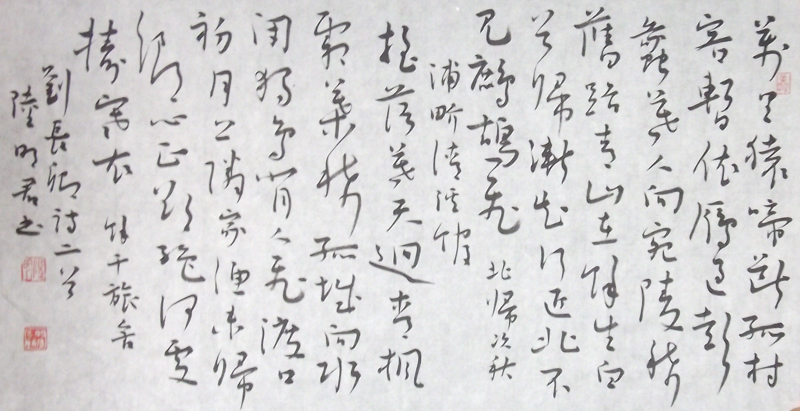 萬里猿啼斷孤村
客暫依雁過彭
蠡暮人向宛陵稀
舊路青山在餘生白
首歸漸知行近北不
見鷓鴣飛 北歸次秋
浦畍清溪館
搖落暮天迥青楓
霜葉稀孤城向水
閉獨鳥背人飛渡口
初月上鄰家漁未歸
鄉心正欲絕何處
擣寒衣 餘干旅舍
劉長卿詩二首
陸明君書